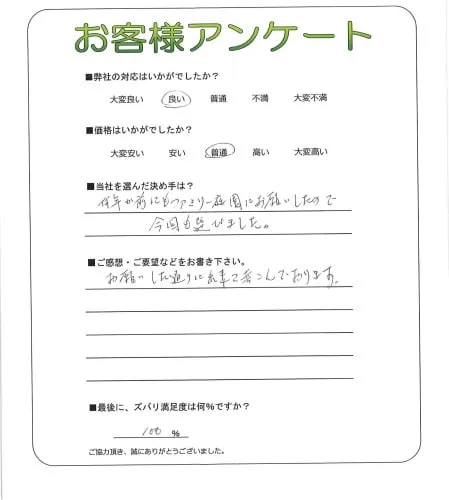 お客様アンケート
■弊社の対応はいかがでしたか？
大変良い 良い 普通 不満 大変不満
■価格はいかがでしたか？
大変安い 安い 普通 高い 大変高い
■当社を選んだ決め手は？
年か前にもファミリー庭園にお願いしたので
今回も選びました。
■ご感想・ご要望などをお書き下さい。
お願いした通りに出来て喜こんでおります。
■最後に、ズバリ満足度は何%ですか？
100 %
ご協力頂き、誠にありがとうございました。